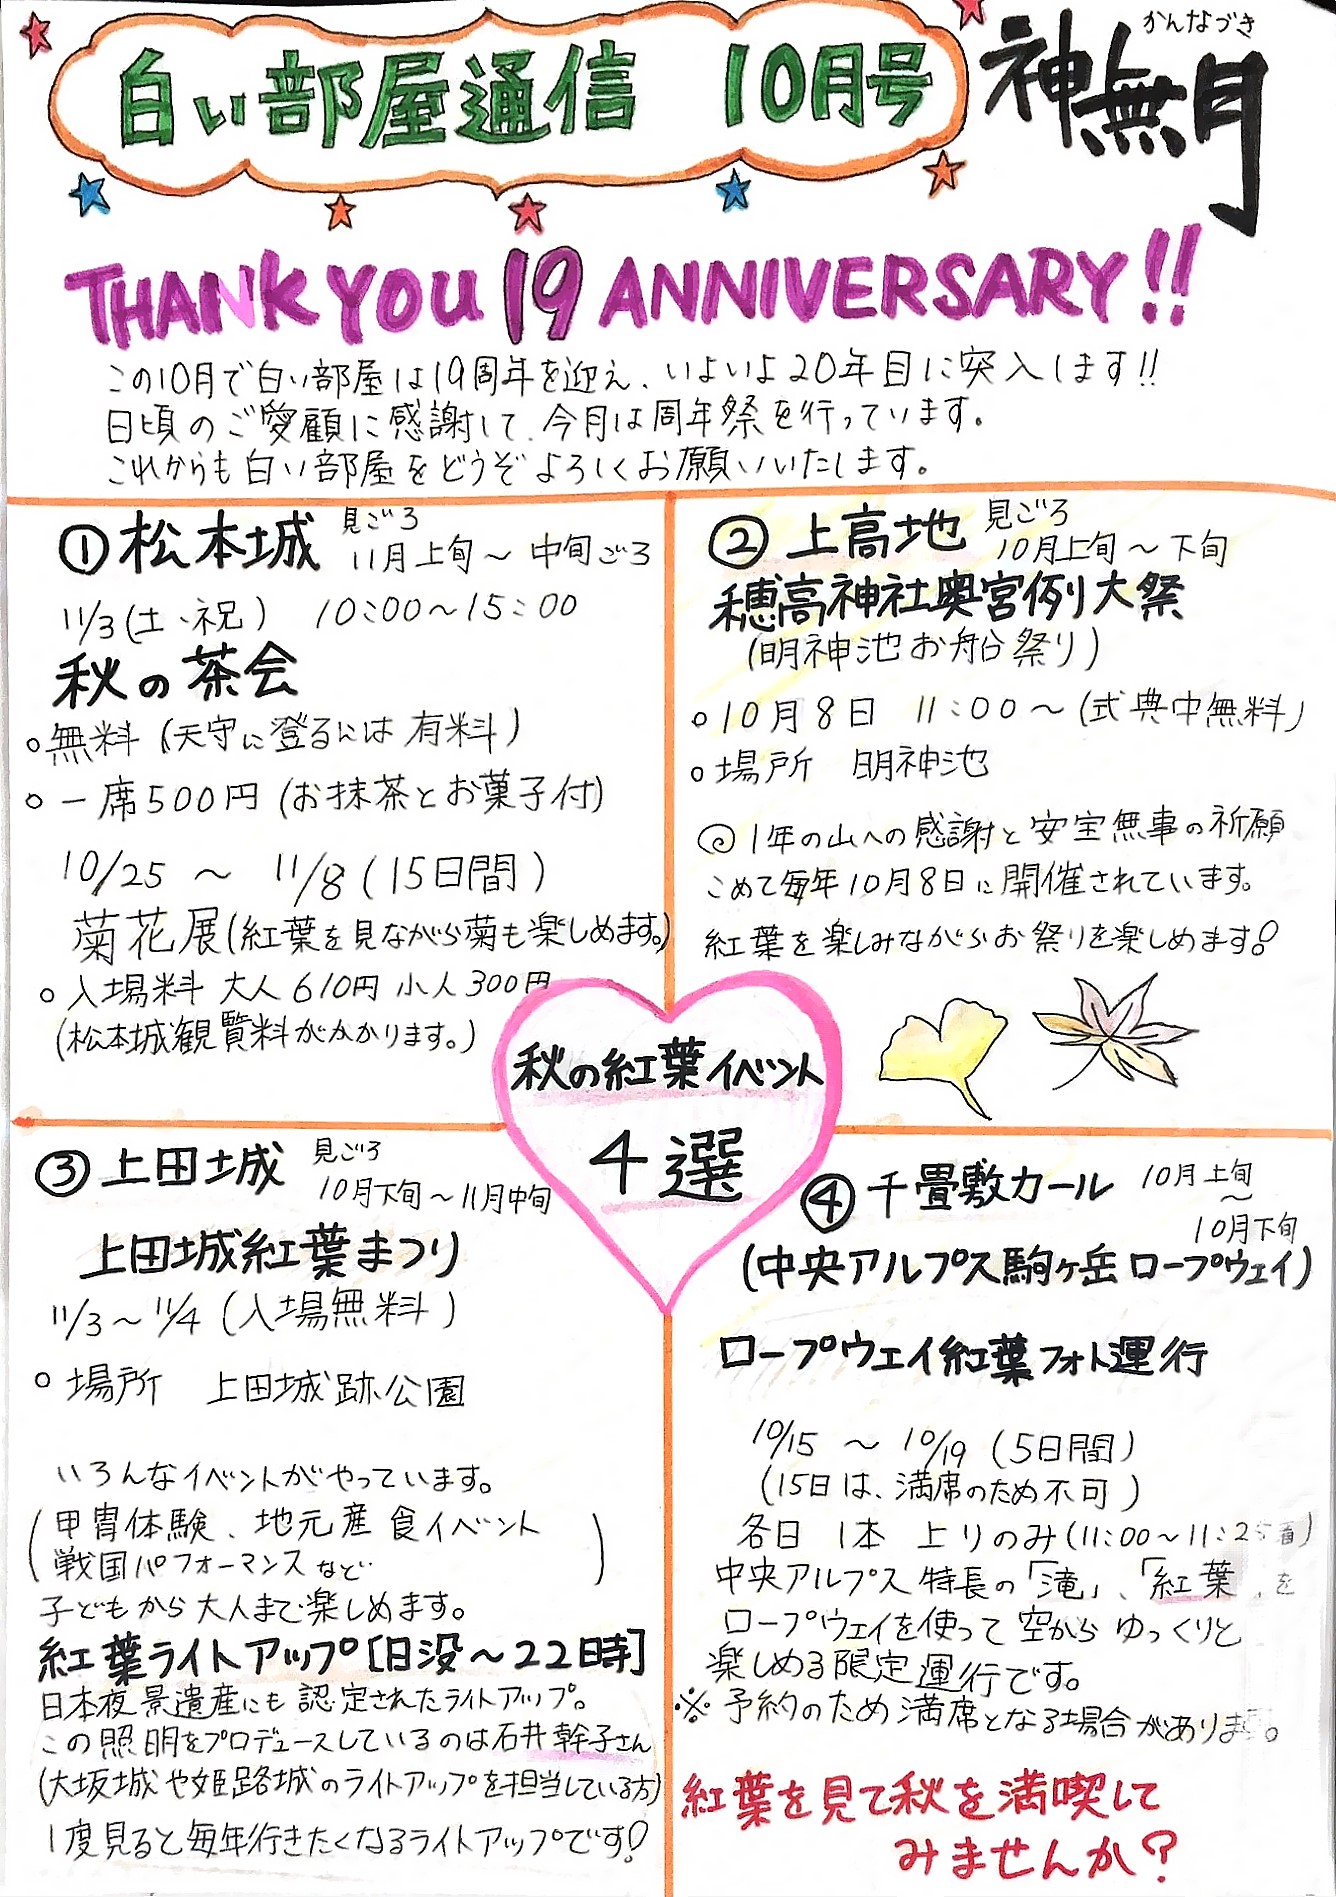 白い部屋通信 10月号
かんなづき
神無月
THANK YOU 19 ANNIVERSARY!!
この10月で白い部屋は19周年を迎え、いよいよ20年目に突入します!!
日頃のご愛顧に感謝して、今月は周年祭を行っています。
これからも白い部屋をどうぞよろしくお願いいたします。
①松本城 見ごろ
11月上旬〜中旬ごろ
11/3(土・祝) 10:00〜15:00
秋の茶会
○無料(天守に登るには有料)
○一席500円(お抹茶とお菓子付)
10/25 〜 11/8(15日間)
菊花展(紅葉を見ながら菊も楽しめます。)
○入場料 大人610円 小人300円
(松本城観覧料がかかります。)
②上高地 見ごろ
10月上旬〜下旬
穂高神社奥宮例大祭
(明神池お船祭り)
○10月8日 11:00〜(式典中無料)
○場所 明神池
◎1年の山への感謝と安全無事の祈願
こめて毎年10月8日に開催されています。
紅葉を楽しみながらお祭りを楽しめます!
秋の紅葉イベント
4選
③上田城 見ごろ
10月下旬〜11月中旬
上田城紅葉まつり
11/3〜11/4(入場無料)
○場所 上田城跡公園
いろんなイベントがやっています。
(甲冑体験、地元産食イベント
戦国パフォーマンスなど)
子どもから大人まで楽しめます。
紅葉ライトアップ[日没〜22時]
日本夜景遺産にも認定されたライトアップ。
この照明をプロデュースしているのは石井幹子さん
(大坂城や姫路城のライトアップを担当している方)
1度見ると毎年行きたくなるライトアップです!
④千畳敷カール 10月上旬
〜
10月下旬
(中央アルプス駒ヶ岳ロープウェイ)
ロープウェイ紅葉フォト運行
10/15 〜 10/19(5日間)
(15日は、満席のため不可)
各日 1本 上りのみ(11:00〜11:25着)
中央アルプス特長の「滝」、「紅葉」を
ロープウェイを使って空からゆっくりと
楽しめる限定運行です。
※予約のため満席となる場合があります。
紅葉を見て秋を満喫して
みませんか?